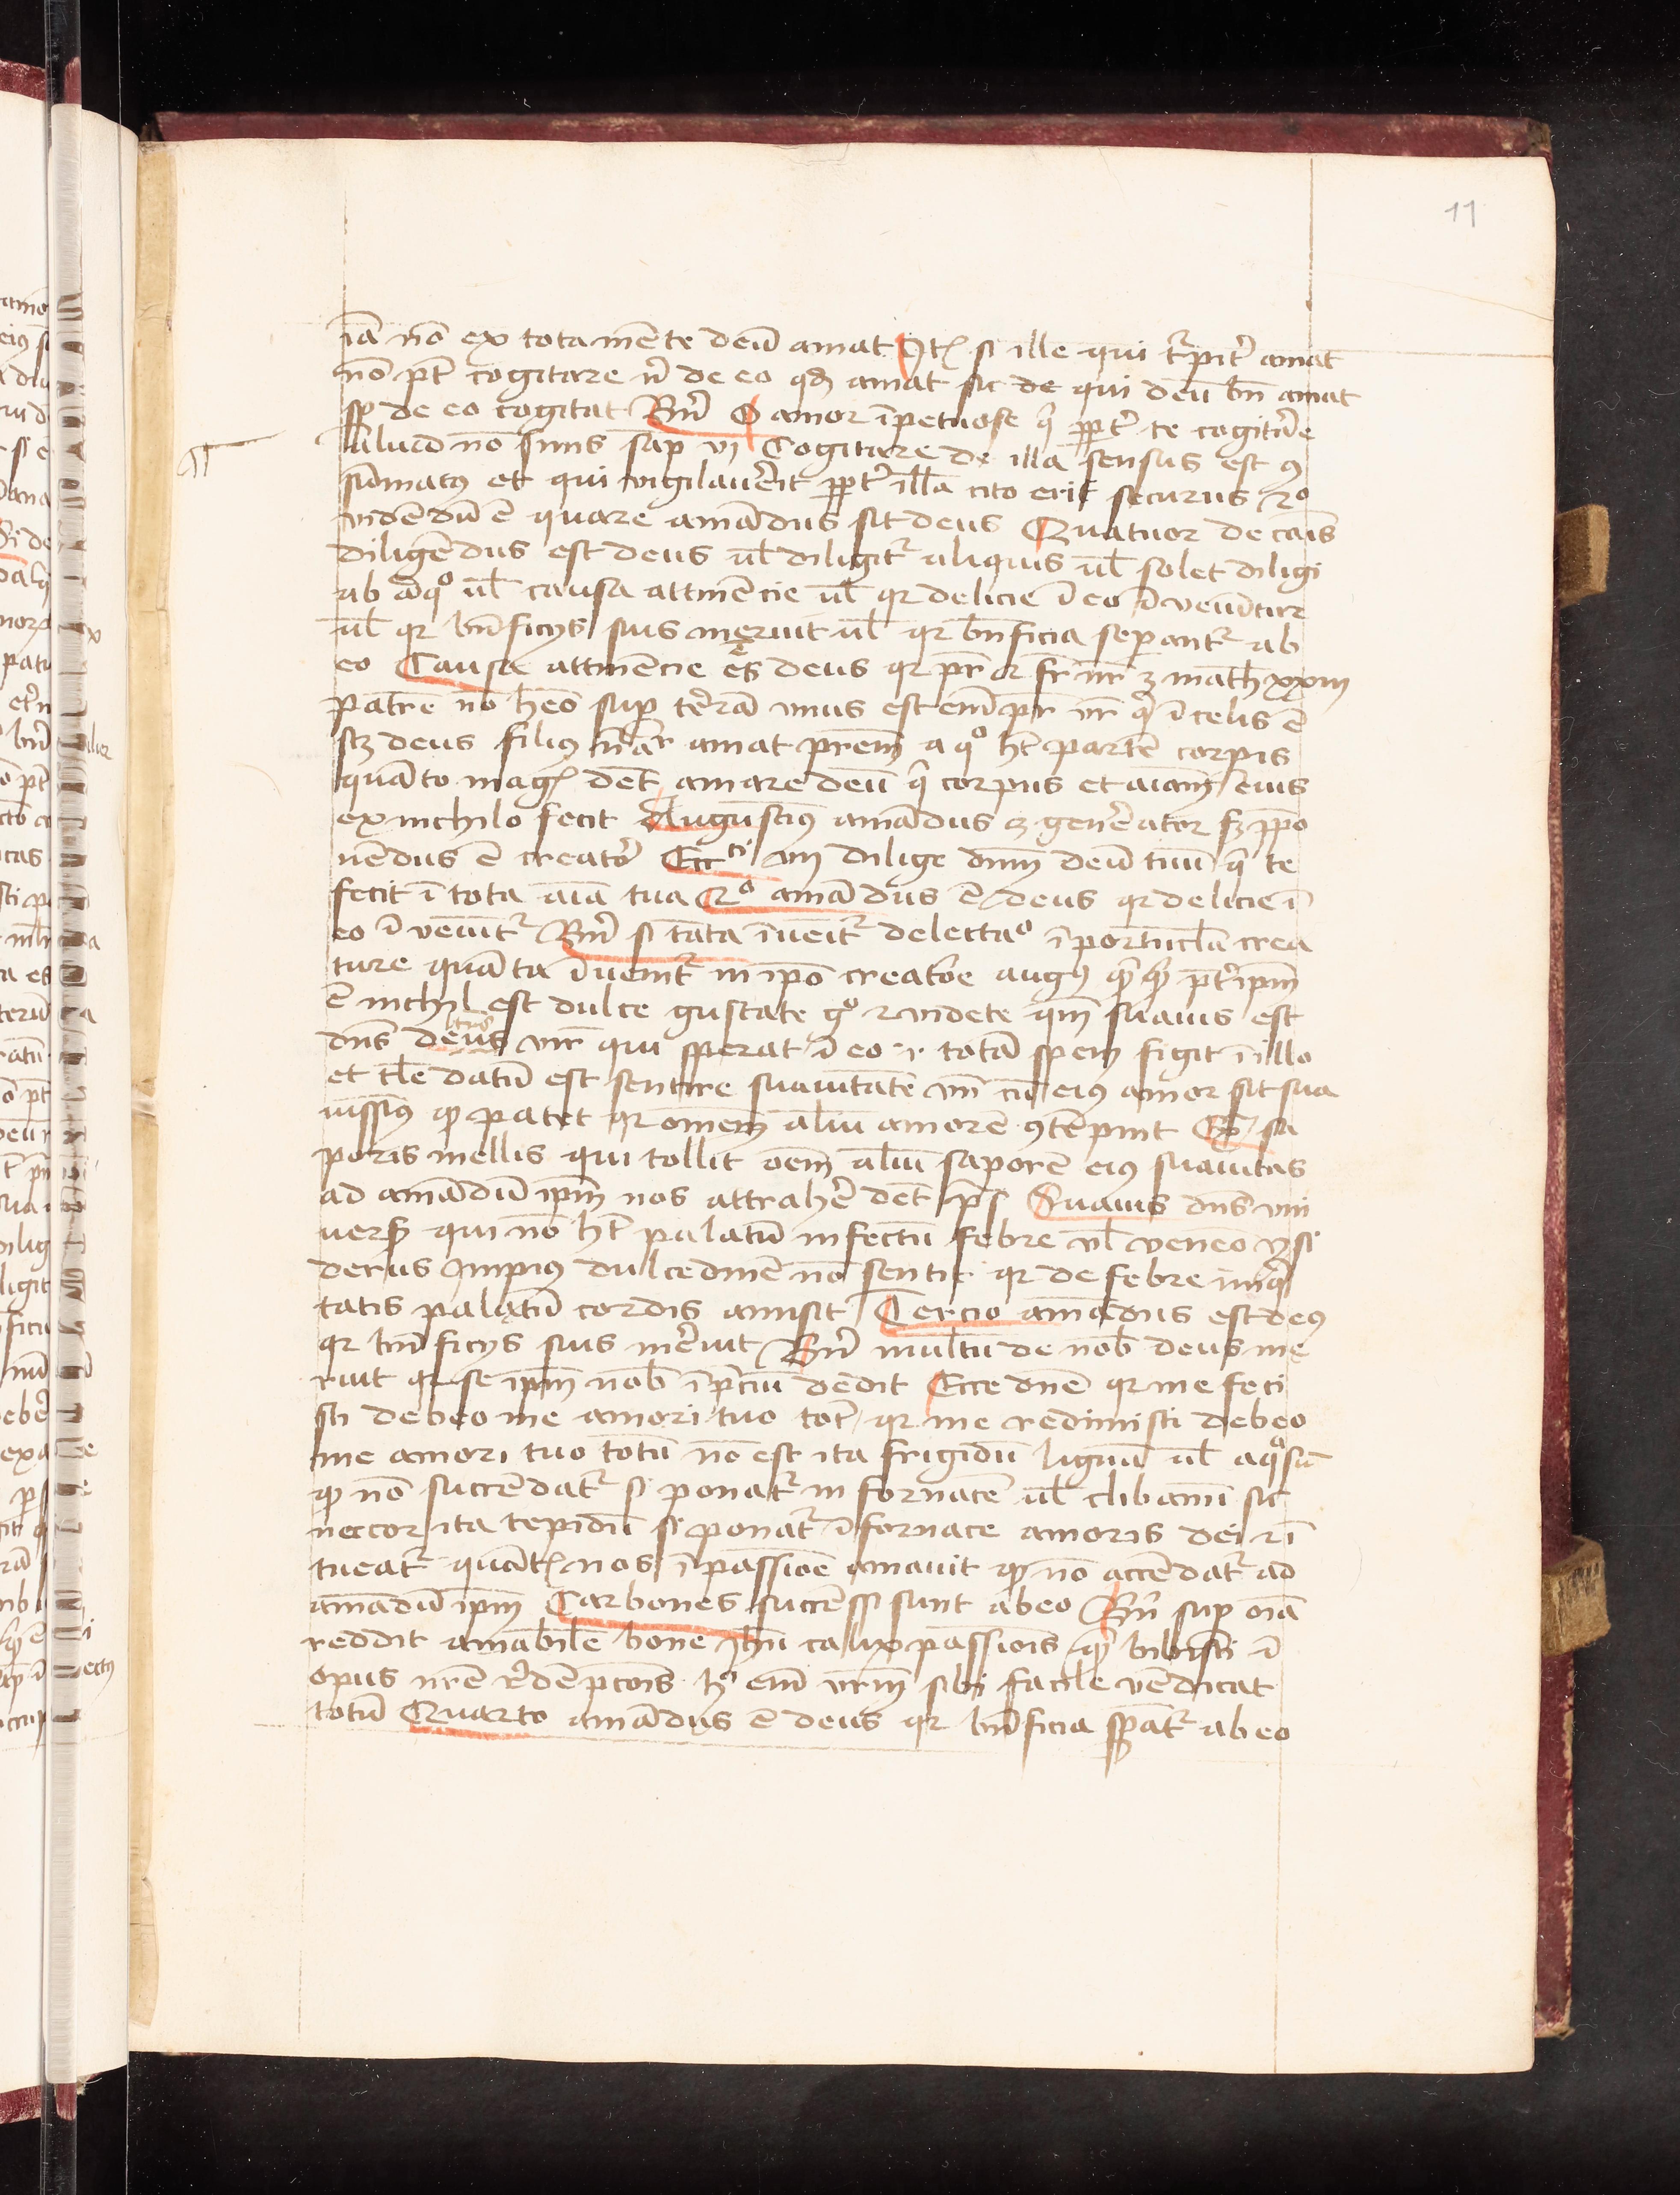 11
iā nō ex tota mēte deū amat Itē si ille qui tr̄pit̄ amat
nō pt̄ cogitare n̄ de eo qd̄ amat sic de qui deū bn̄ amat
sp̄ de eo cogitat Bn̄ O amor īpetuose q̄ ppt̄ te cogitāe
aliud nō sinis sap vi Cogitare de illa sensus est ꝯ
sūmatꝰ et qui vigilauerit ppt̄ illā cito erit securus 2o
videdū ē quare amādus sit deus Quatuor de cāis
diligēdus est deus ul̄ diligit̄ aliquis ul̄ solet diligi
ab aliqo ul̄ causa attinēcie ul̄ qr delicie ī eo īveniūtur
ul̄ qr bn̄ficijs suis meruit ul̄ qr bn̄ficia sperant̄ ab
eo Causa attinēcie ē deus qr pr̄ et fr̄ nr̄ math xxiii
patrē nō heō sup terrā unus est eni pr̄ vr̄ q̄ ī celis ē
scz deus filiꝰ amat prēm a qo ht̄ partē corpis
quāto magꝭ det̄ amare deū q̄ corpus et aiam eius
ex nichilo fecit Augustiꝰ amādus ē generator sꝫ ppo
nēdus ē creator Ecctī vii dilige dnm deū tuū q̄ te
fecit ī tota aīa tua 2o amādus ē deus qr delicie ī
eo īveniūt̄ Bn̄ si tāta īueit̄ delectao ī porticula crea
ture quāta īvenit̄ in ipo creatore augꝰ ptr̄ ipm
ē nichil est dulce gustate go et videte qm̄ suauis est
dn̄s deus btūs vir qui sperat ī eo .i. totā spem figit ī illo
et tl̄e datū est sentire suauitatē vn̄ cū eiꝰ amor sit sua
uissimꝰ ꝙ patet qr omnem aliū amorē ꝯtēpnit Ex sa
poris mellis qui tollit oēm aliū saporē eiꝰ suauitas
ad amādū ipm nos attrahere det̄ ps Suauis dn̄s vni
uersꝭ qui nō ht̄ palatū infectū febre ul̄ veneo ysi
derus Impius dulcedinē nō sentit qr de febre iniq̄
tatis palatū cordis amisit Tercio amādus est deꝰ
qr bn̄ficijs suis meruit Bn̄ multū de nob̄ deus me
ruit qr se ipm nob̄ ī p̄ciū dedit Ecce dnē qr me feci
sti debeo me amori tuo tot̄ qr me redimisti debeo
me amori tuo totū nō est ita frigidū lignū ul̄ aqosū
ꝙ nō succēdat̄ si ponat̄ in fornacē ul̄ clibanū sic
nec cor ita tepidū si ponat̄ ī fornace amoris dei et ī
tueat̄ quātꝭ nos ī passioē amauit ꝙ nō accēdat̄ ad
amādū ipm Carbones succēssi sunt ab eo Bn̄ sup oīa
reddit amabilē bone ihū calix passiois quē bibisti ī
opus nrē redēpcois hō em̄ vr̄m sibi facile vēdicat
totū Quarto amādus ē deus qr bn̄ficia sperāt̄ ab eo